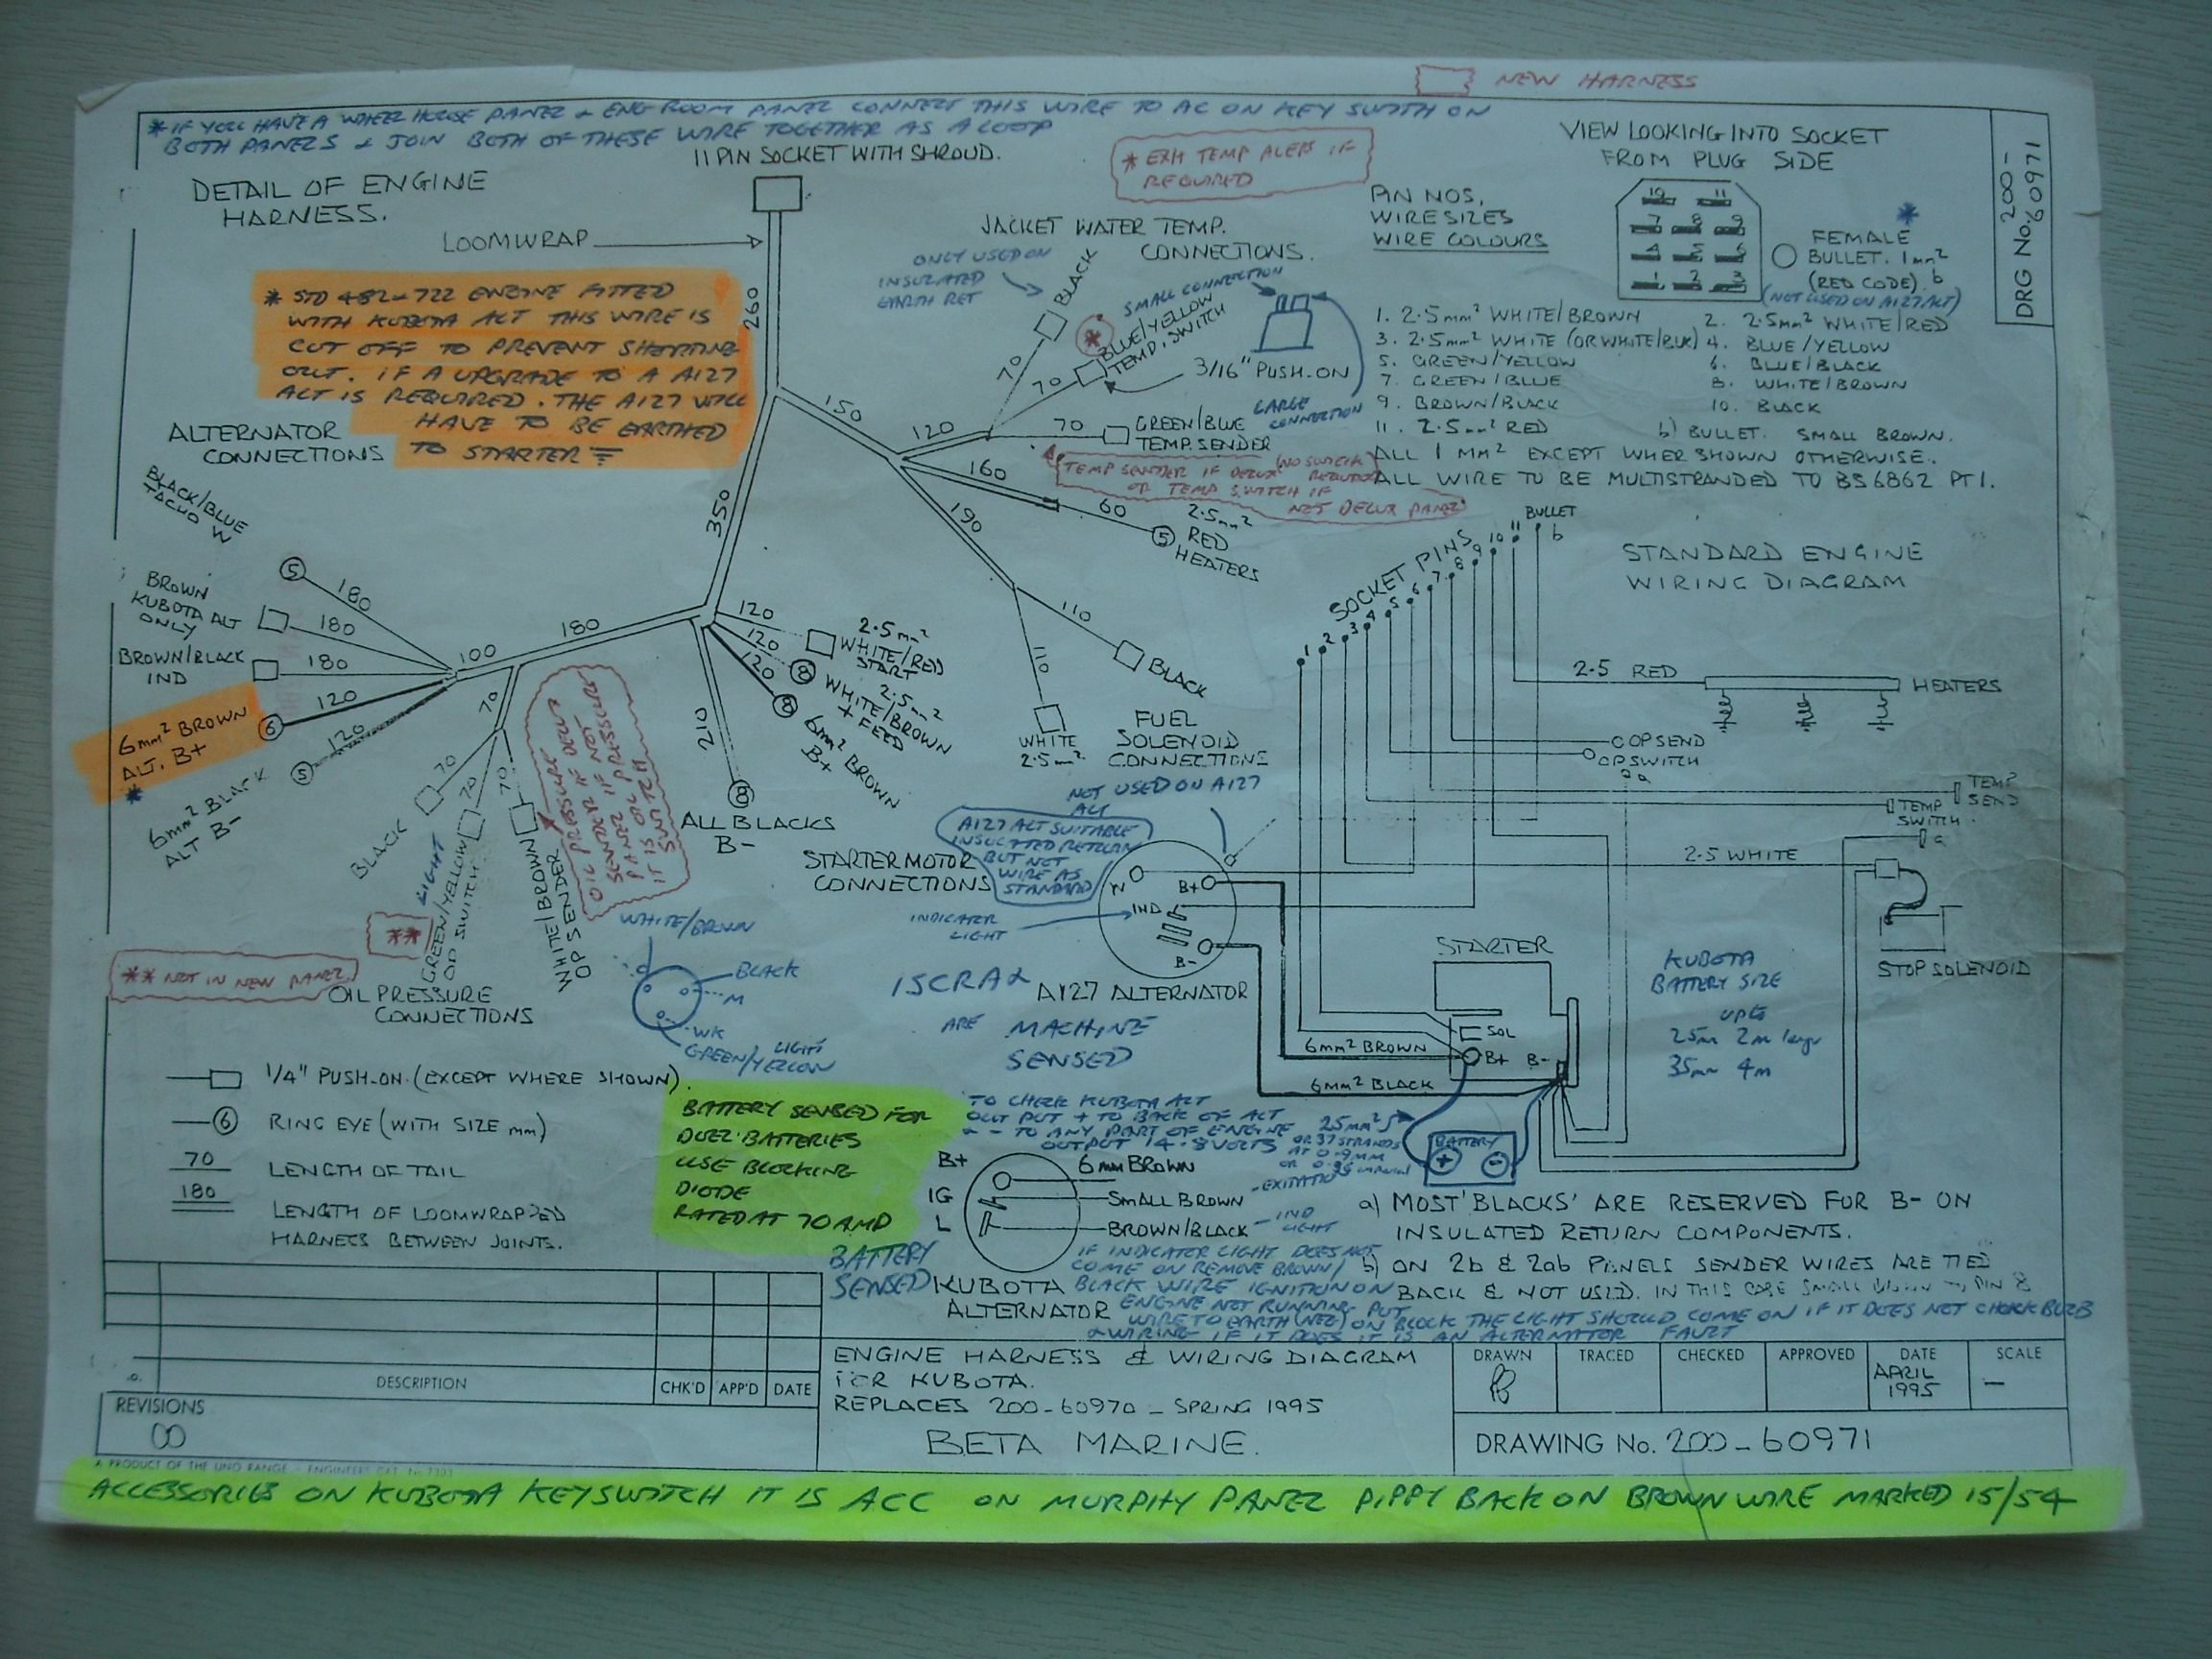 NEW HARNESS
* IF YOU HAVE A WHEEL HOUSE PANEL & ENG ROOM PANEL CONNECT THIS WIRE TO AC ON KEY SWITH ON
BOTH PANELS & JOIN BOTH OF THESE WIRE TOGETHER AS A LOOP
11 PIN SOCKET WITH SHROUD.
DETAIL OF ENGINE
HARNESS.
LOOMWRAP
* STD 482 & 722 ENGINE FITTED
WITH KUBOTA ALT THIS WIRE IS
CUT OFF TO PREVENT SHORTING
OUT. IF A UPGRADE TO A A127
ALT IS REQUIRED. THE A127 WILL
HAVE TO BE EARTHED
TO STARTER
* EXH TEMP ALERT IF
REQUIRED
VIEW LOOKING INTO SOCKET
FROM PLUG SIDE
10 11
7 8 9
4 5 6
1 2 3
*
FEMALE
BULLET. 1mm²
(RED CODE). b
(NOT USED ON A127 ALT)
DRG No. 200-
60971
PIN NOS.
WIRE SIZES
WIRE COLOURS
1. 2.5mm² WHITE/BROWN
2. 2.5mm² WHITE/RED
3. 2.5mm² WHITE (OR WHITE/BLK)
4. BLUE/YELLOW
5. GREEN/YELLOW
6. BLUE/BLACK
7. GREEN/BLUE
8. WHITE/BROWN
9. BROWN/BLACK
10. BLACK
11. 2.5mm² RED
b) BULLET. SMALL BROWN.
ALL 1 MM² EXCEPT WHER SHOWN OTHERWISE.
ALL WIRE TO BE MULTISTRANDED TO BS6862 PT1.
JACKET WATER TEMP.
CONNECTIONS.
ONLY USED ON
INSULATED
EARTH RET
BLACK
SMALL CONNECTION
*
BLUE/YELLOW
TEMP. SWITCH
3/16" PUSH-ON
LARGE
CONNECTION
GREEN/BLUE
TEMP. SENDER
TEMP SENDER IF DELUX
OR TEMP SWITCH IF
NOT DELUX PANEL
260
150
120
70
70
70
160
60
190
110
110
350
2.5mm²
RED
HEATERS
5
BLACK
WHITE
2.5mm²
FUEL
SOLENOID
CONNECTIONS
ALTERNATOR
CONNECTIONS
BLACK/BLUE
TACHO W
5
180
BROWN
KUBOTA ALT
ONLY
180
BROWN/BLACK
IND
180
6mm² BROWN
ALT. B+
*
6
120
6mm² BLACK
ALT B-
5
120
100
180
70
70
70
70
BLACK
LIGHT
GREEN/YELLOW
OP SWITCH
WHITE/BROWN
OP SENDER
**
** NOT IN NEW PANEL
OIL PRESSURE
CONNECTIONS
OIL PRESSURE
SENDER IF DELUX
PANEL IF NOT
IT IS OIL PRESSURE
SWITCH
120
120
120
210
2.5mm²
WHITE/RED
START
8
2.5mm²
WHITE/BROWN
+ FEED
8
6mm² BROWN
B+
8
ALL BLACKS
B-
STARTER MOTOR
CONNECTIONS
WHITE/BROWN
BLACK
M
WK
LIGHT
GREEN/YELLOW
STANDARD ENGINE
WIRING DIAGRAM
SOCKET PINS
1 2 3 4 5 6 7 8 9 10 11
BULLET
b
2.5 RED
HEATERS
OP SEND
OP SWITCH
a
TEMP
SEND
TEMP
SWITCH
a
2.5 WHITE
STOP SOLENOID
NOT USED ON A127
ALT
A127 ALT SUITABLE
INSULATED RETURN
BUT NOT
WIRE AS
STANDARD
W
B+
IND
B-
INDICATER
LIGHT
ISCRA &
A127 ALTERNATOR
ARE MACHINE
SENSED
STARTER
SOL
B+
B-
6mm² BROWN
6mm² BLACK
KUBOTA
BATTERY SIZE
UPTO
25mm 2m
35mm 4m
25mm²
OR 37 STRANDS
AT 0.9MM
BATTERY
+ -
1/4" PUSH-ON. (EXCEPT WHERE SHOWN).
6
RING EYE (WITH SIZE mm)
70
LENGTH OF TAIL
180
LENGTH OF LOOMWRAPPED
HARNESS BETWEEN JOINTS.
BATTERY SENSED FOR
DUEL BATTERIES
USE BLOCKING
DIODE
RATED AT 70 AMP
TO CHERK KUBOTA ALT
OUT PUT + TO BACK OF ALT
& - TO ANY PART OF ENGINE
OUTPUT 14.8 VOLTS
B+
IG
L
6mm BROWN
SMALL BROWN
-EXITATION
BROWN/BLACK
IND
LIGHT
BATTERY
SENSED
KUBOTA
ALTERNATOR
IF INDICATER LIGHT DOES NOT
COME ON REMOVE BROWN/
BLACK WIRE IGNITION ON
ENGINE NOT RUNNING PUT
WIRE TO EARTH (NEG) ON BLOCK THE LIGHT SHOULD COME ON IF IT DOES NOT CHERK BULB
& WIRING IF IT DOES IT IS AN ALTERNATOR FAULT
a) MOST 'BLACKS' ARE RESERVED FOR B- ON
INSULATED RETURN COMPONENTS.
b) ON 2b & 2ab PANELS SENDER WIRES ARE TIED
BACK & NOT USED. IN THIS CASE SMALL BROWN TO PIN 8
DESCRIPTION
CHK'D
APP'D
DATE
REVISIONS
ENGINE HARNESS & WIRING DIAGRAM
FOR KUBOTA.
REPLACES 200-60970 - SPRING 1995
BETA MARINE.
DRAWN
TRACED
CHECKED
APPROVED
DATE
APRIL
1995
SCALE
—
DRAWING No. 200-60971
A PRODUCT OF THE UNO RANGE
ACCESSORIES ON KUBOTA KEYSWITCH IT IS ACC ON MURPHY PANEL PIPPY BACK ON BROWN WIRE MARKED 15/54